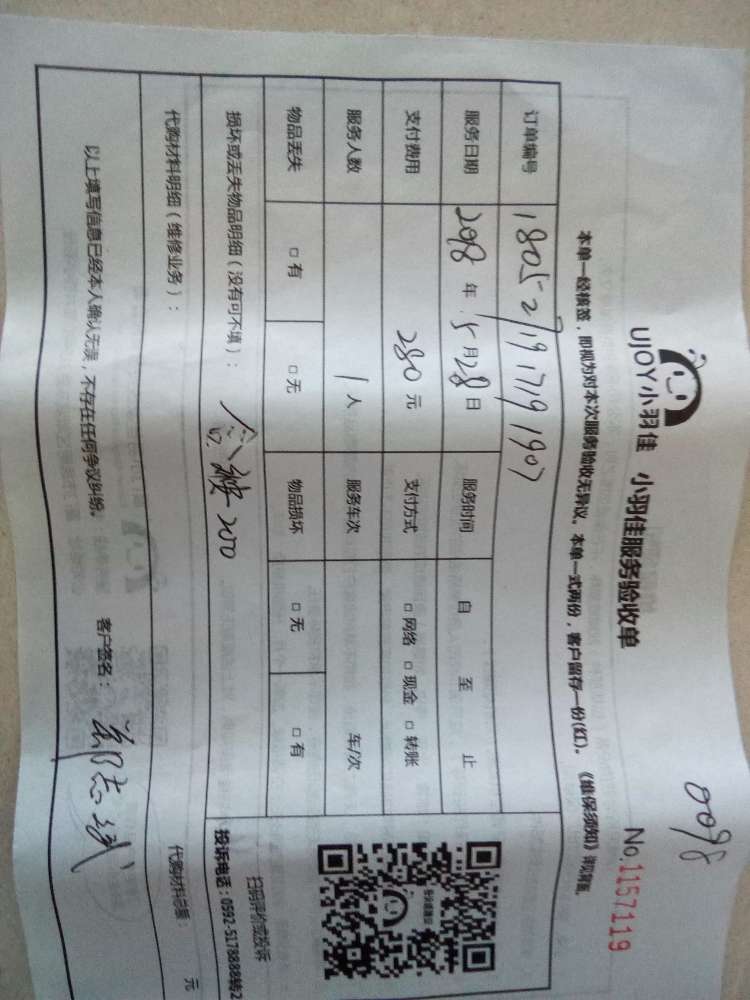 0098
UJOY小羽佳 小羽佳服务验收单
No.1157119
本单一经核签，即视为对本次服务验收无异议。本单一式两份，客户留存一份(红)。《维保须知》详见背面。
订单编号 180527191719190
服务日期 2018年 5月28日 服务时间 自 至 止
支付费用 280元 支付方式 □网络 □现金 □转账
服务人数 1人 服务车次 车/次
物品丢失 □有 □无 物品损坏 □无 □有
损坏或丢失物品明细（没有可不填）： 200
扫码评价或投诉
投诉电话：0592-5178888转2
代购材料明细（维修业务）：
代购材料总额： 元
以上填写信息已经本人确认无误，不存在任何争议纠纷。 客户签名： 郑志斌